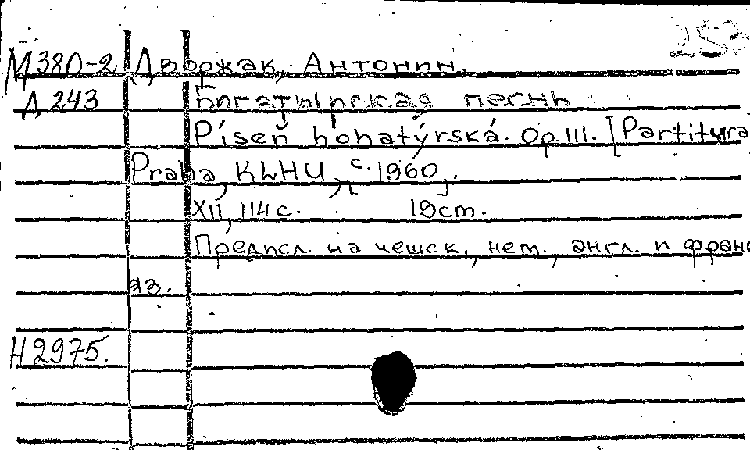 253
М380-2 Дворжак, Антонин.
Д 243 Богатырская песнь
Píseň bohatýrská. Op. 111. [Partitura
Praha, KLHU, c. 1960].
XII, 114 с. 19 cm.
Предисл. на чешск., нем., англ. и франц
яз.
Н2975.